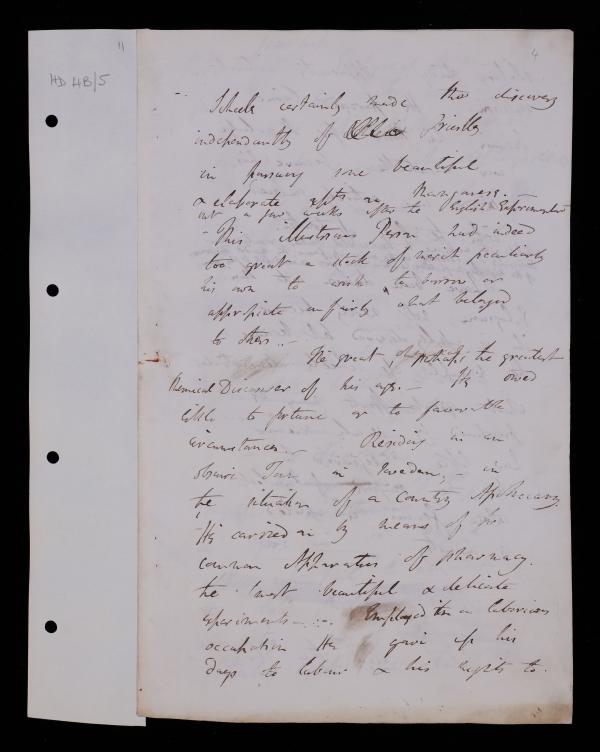 11
HD 4B/5
4
Scheele certainly made this discovery
independantly of Priestley
in pursuing some beautiful
& elaborate expts on Manganese.
not a few weeks after the English Experimenter
This illustrious Person had indeed
too great a stock of merit peculiarly
his own to wish to borrow or
appropriate unfairly what belonged
to others. -
He great, perhaps the greatest
Chemical Discoverer of his age. - He owed
little to fortune or to favorable
circumstances. - Residing in an
obscure Town in Sweden, - in
the situation of a Country Apothecary.
He carried on by means of the
common Apparatus of pharmacy.
the most beautiful & delicate
experiments. - Employed in a laborious
occupation He gave up his
days to labour & his nights to